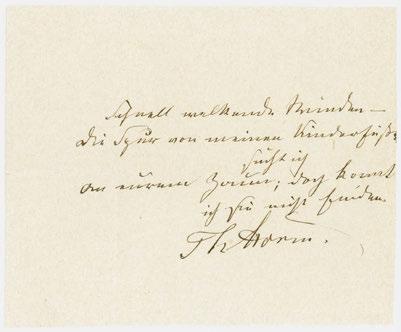 Schnell welkende Winden –
Die Spur von meinen Kinderfüßen
sucht ich
an eurem Zaun; doch konnt
ich sie nicht finden.
Th Storm.